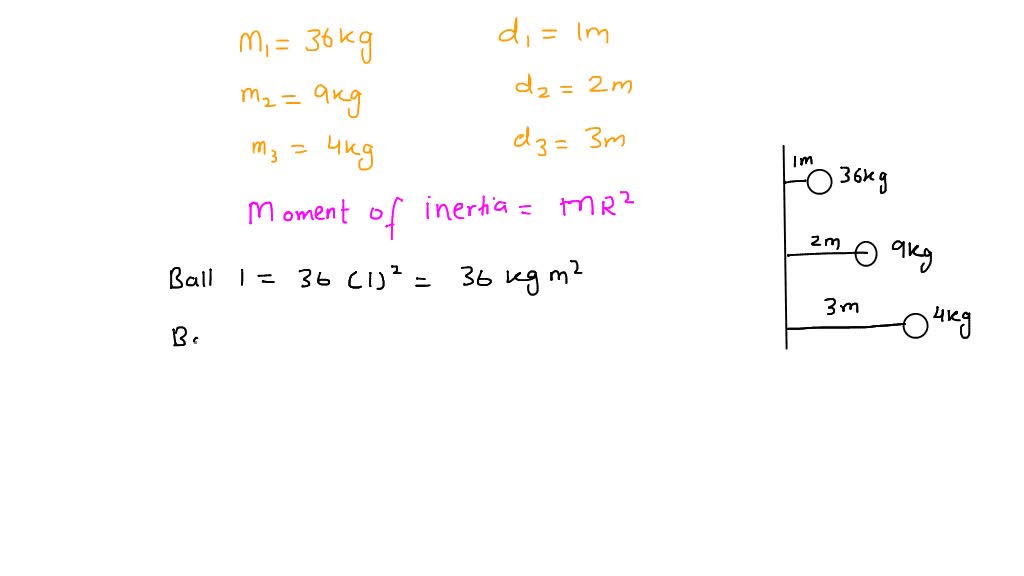 m₁ = 36kg
d₁ = 1m
m₂ = 9kg
d₂ = 2m
m₃ = 4kg
d₃ = 3m
Moment of inertia = MR²
Ball 1 = 36 (1)² = 36 kg m²
1m
36kg
2m
9kg
3m
4kg